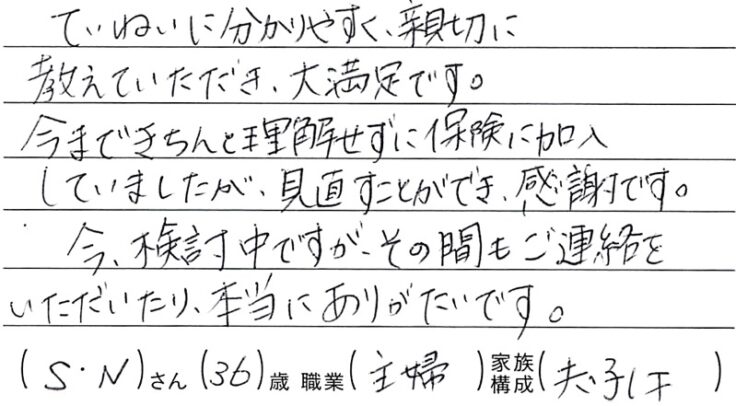 ていねいに分かりやすく、親切に
教えていただき、大満足です。
今まできちんと理解せずに保険に加入
していましたが、見直すことができ、感謝です。
今、検討中ですが、その間もご連絡を
いただいたり、本当にありがたいです。
(S・N)さん(36)歳 職業(主婦)家族構成(夫・子1人)